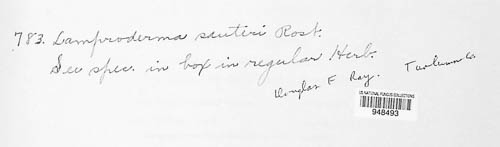 783. Lamproderma sauteri Rost.
See spec. in box in regular Herb.
Douglas F Ray. Tuolumne Co.
US NATIONAL FUNGUS COLLECTIONS
948493